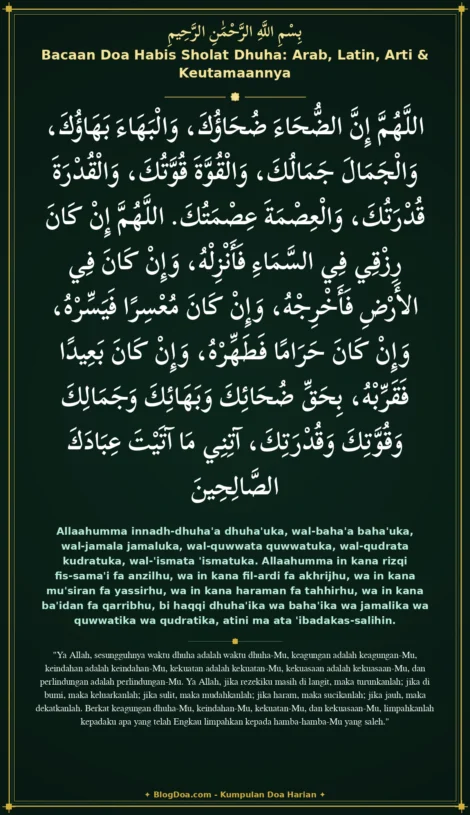 بِسْمِ اللَّهِ الرَّحْمَٰنِ الرَّحِيمِ
Bacaan Doa Habis Sholat Dhuha: Arab, Latin, Arti &
Keutamaannya
اللَّهُمَّ إِنَّ الضُّحَاءَ ضُحَاؤُكَ، وَالْبَهَاءَ بَهَاؤُكَ،
وَالْجَمَالَ جَمَالُكَ، وَالْقُوَّةَ قُوَّتُكَ، وَالْقُدْرَةَ
قُدْرَتُكَ، وَالْعِصْمَةَ عِصْمَتُكَ. اللَّهُمَّ إِنْ كَانَ
رِزْقِي فِي السَّمَاءِ فَأَنْزِلْهُ، وَإِنْ كَانَ فِي
الأَرْضِ فَأَخْرِجْهُ، وَإِنْ كَانَ مُعْسِرًا فَيَسِّرْهُ،
وَإِنْ كَانَ حَرَامًا فَطَهِّرْهُ، وَإِنْ كَانَ بَعِيدًا
فَقَرِّبْهُ، بِحَقِّ ضُحَائِكَ وَبَهَائِكَ وَجَمَالِكَ
وَقُوَّتِكَ وَقُدْرَتِكَ، آتِنِي مَا آتَيْتَ عِبَادَكَ
الصَّالِحِينَ
Allaahumma innadh-dhuha'a dhuha'uka, wal-baha'a baha'uka,
wal-jamala jamaluka, wal-quwwata quwwatuka, wal-qudrata
kudratuka, wal-'ismata 'ismatuka. Allaahumma in kana rizqi
fis-sama'i fa anzilhu, wa in kana fil-ardi fa akhrijhu, wa in kana
mu'siran fa yassirhu, wa in kana haraman fa tahhirhu, wa in kana
ba'idan fa qarribhu, bi haqqi dhuha'ika wa baha'ika wa jamalika wa
quwwatika wa qudratika, atini ma ata 'ibadakas-salihin.
"Ya Allah, sesungguhnya waktu dhuha adalah waktu dhuha-Mu, keagungan adalah keagungan-Mu,
keindahan adalah keindahan-Mu, kekuatan adalah kekuatan-Mu, kekuasaan adalah kekuasaan-Mu, dan
perlindungan adalah perlindungan-Mu. Ya Allah, jika rezekiku masih di langit, maka turunkanlah; jika di
bumi, maka keluarkanlah; jika sulit, maka mudahkanlah; jika haram, maka sucikanlah; jika jauh, maka
dekatkanlah. Berkat keagungan dhuha-Mu, keindahan-Mu, kekuatan-Mu, dan kekuasaan-Mu, limpahkanlah
kepadaku apa yang telah Engkau limpahkan kepada hamba-hamba-Mu yang saleh."
✦ BlogDoa.com - Kumpulan Doa Harian ✦